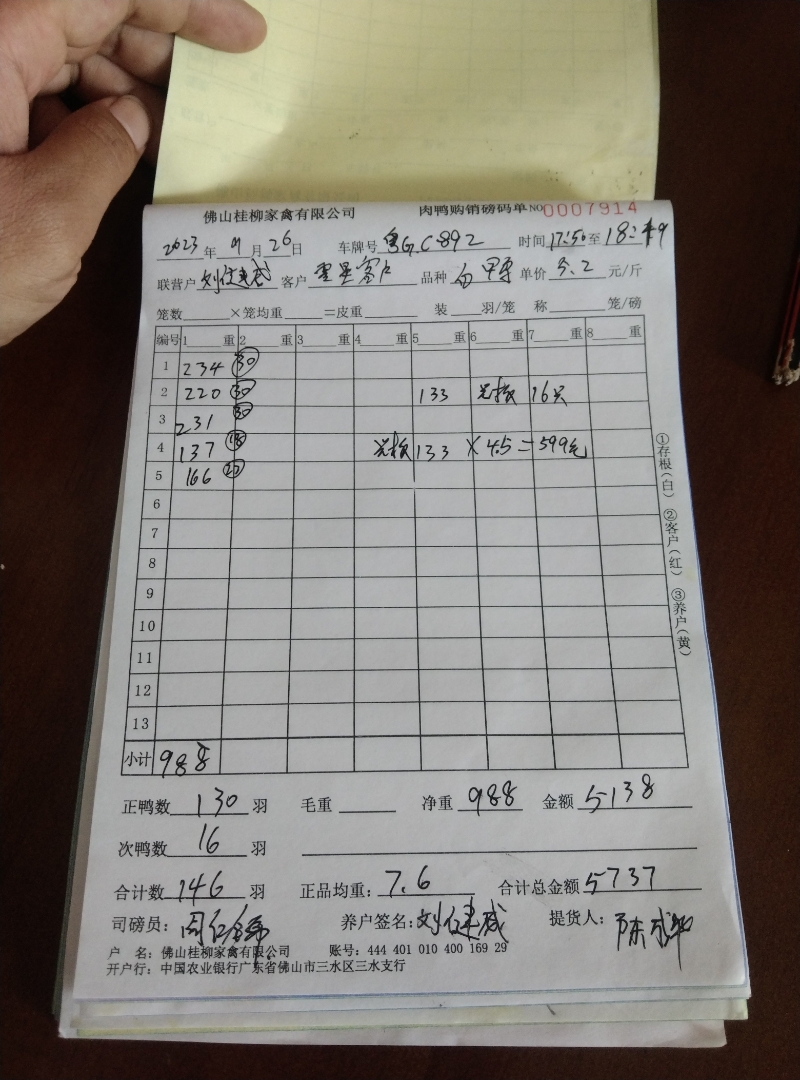 佛山桂柳家禽有限公司 肉鸭购销磅码单 NO 0007914
2023年 9月 26日 车牌号 粤G.C892 时间 17:50至18:
联营户 刘 客户 零星客户 品种 白 单价 5.2 元/斤
笼数 ×笼均重 =皮重 装 羽/笼 称 笼/磅
编号 1 重 2 重 3 重 4 重 5 重 6 重 7 重 8 重
1 234 30
2 220 30 133 16只
3 231 30
4 137 18 133 × 4.5 = 599元
5 166 22
6
7
8
9
10
11
12
13
小计 988
①存根(白) ②客户(红) ③养户(黄)
正鸭数 130 羽 毛重 净重 988 金额 5138
次鸭数 16 羽
合计数 146 羽 正品均重: 7.6 合计总金额 5737
司磅员: 周 养户签名: 刘 提货人: 陈
户 名: 佛山桂柳家禽有限公司 账号: 444 401 010 400 169 29
开户行: 中国农业银行广东省佛山市三水区三水支行